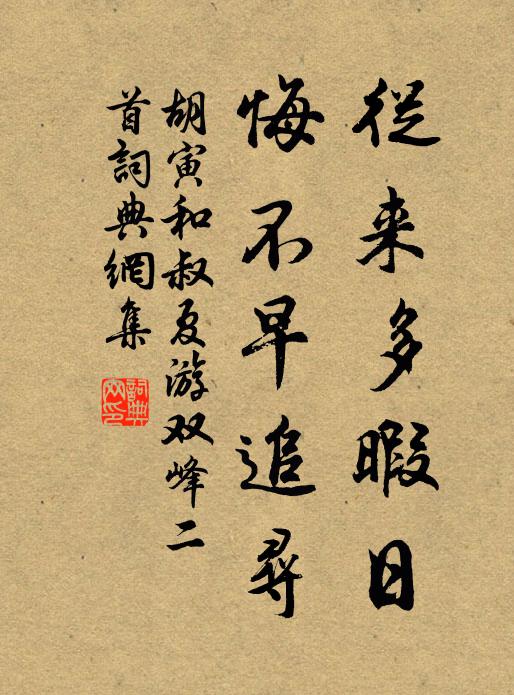 從来多暇日
悔不早追尋
胡寅和叔夏游双峰二
首詞典網集
詞典网印